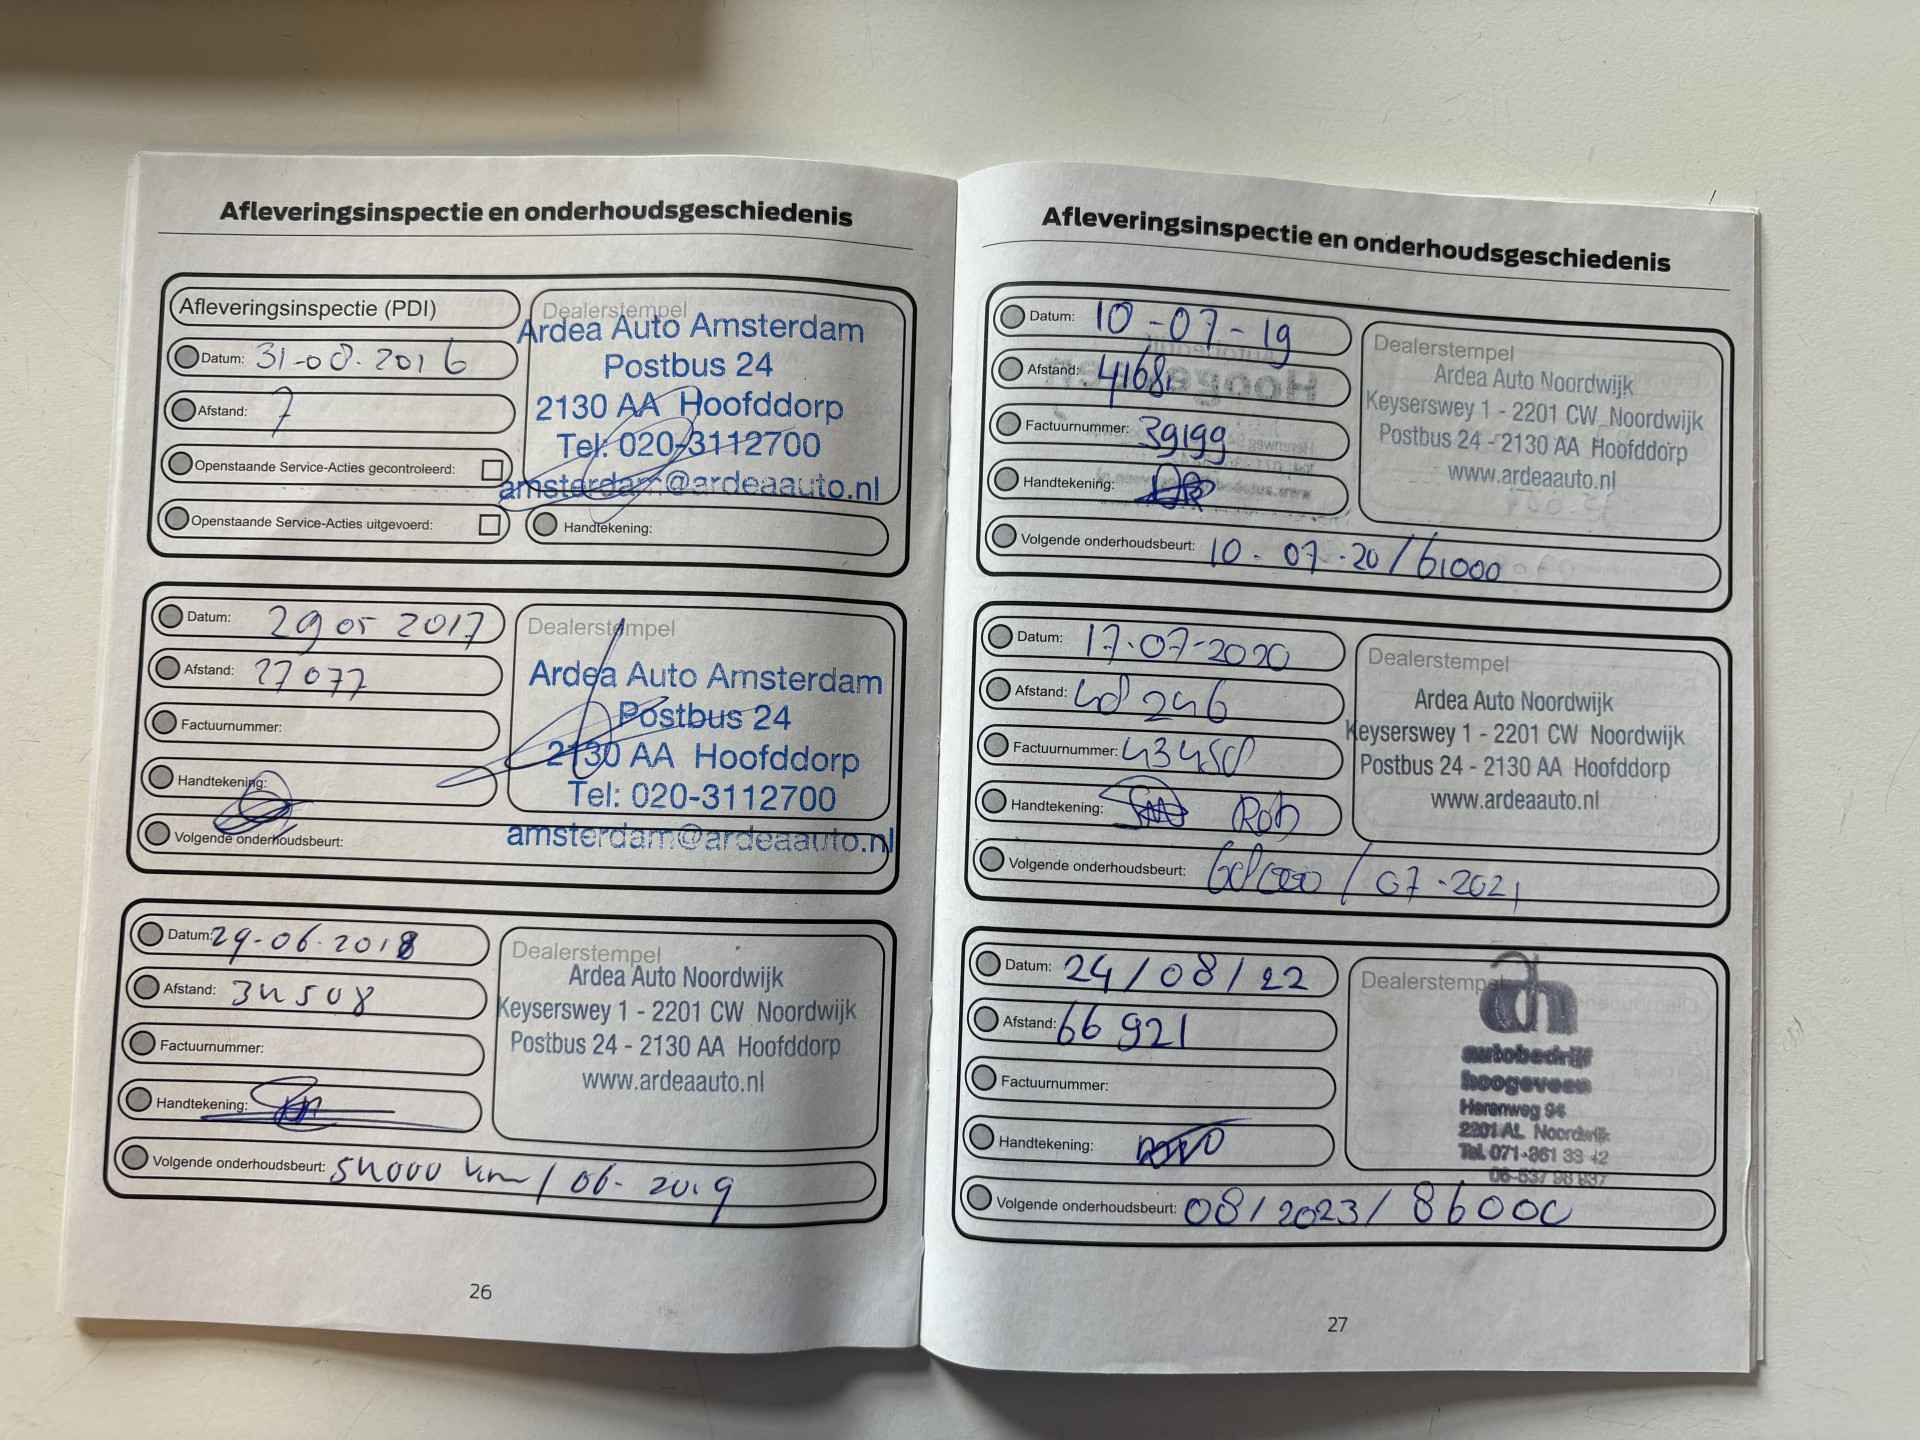 Afleveringsinspectie en onderhoudsgeschiedenis
Afleveringsinspectie (PDI)
Datum: 31-08-2016
Afstand: 7
Openstaande Service-Acties gecontroleerd:
Openstaande Service-Acties uitgevoerd:
Dealerstempel
Ardea Auto Amsterdam
Postbus 24
2130 AA Hoofddorp
Tel: 020-3112700
amsterdam@ardeaauto.nl
Handtekening:
Datum: 29 05 2017
Afstand: 27077
Factuurnummer:
Handtekening:
Volgende onderhoudsbeurt:
Dealerstempel
Ardea Auto Amsterdam
Postbus 24
2130 AA Hoofddorp
Tel: 020-3112700
amsterdam@ardeaauto.nl
Datum: 29-06-2018
Afstand: 34508
Factuurnummer:
Handtekening:
Volgende onderhoudsbeurt: 54000 km / 06-2019
Dealerstempel
Ardea Auto Noordwijk
Keyserswey 1 - 2201 CW Noordwijk
Postbus 24 - 2130 AA Hoofddorp
www.ardeaauto.nl
26
Afleveringsinspectie en onderhoudsgeschiedenis
Datum: 10-07-19
Afstand: 41681
Factuurnummer: 39199
Handtekening:
Volgende onderhoudsbeurt: 10-07-20/61000
Dealerstempel
Ardea Auto Noordwijk
Keyserswey 1 - 2201 CW Noordwijk
Postbus 24 - 2130 AA Hoofddorp
www.ardeaauto.nl
Datum: 17-07-2020
Afstand: 48246
Factuurnummer: 43458
Handtekening: Rob
Volgende onderhoudsbeurt: 68000 / 07-2021
Dealerstempel
Ardea Auto Noordwijk
Keyserswey 1 - 2201 CW Noordwijk
Postbus 24 - 2130 AA Hoofddorp
www.ardeaauto.nl
Datum: 24/08/22
Afstand: 66921
Factuurnummer:
Handtekening:
Volgende onderhoudsbeurt: 08/2023/ 86000
Dealerstempel
ah
autobedrijf
hoogeveen
Herenweg 94
2201 AL Noordwijk
Tel. 071-361 33 42
06-537 98 937
27